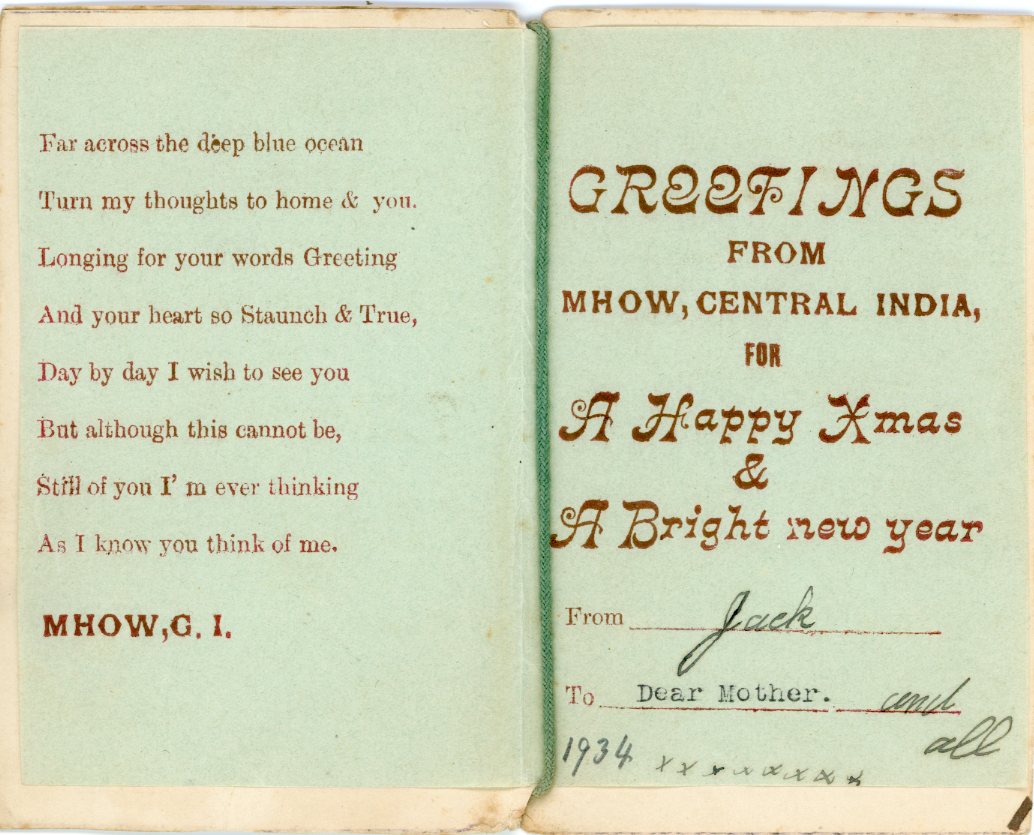 Far across the deep blue ocean
Turn my thoughts to home & you.
Longing for your words Greeting
And your heart so Staunch & True,
Day by day I wish to see you
But although this cannot be,
Still of you I' m ever thinking
As I know you think of me.
MHOW,C. I.
GREETINGS
FROM
MHOW, CENTRAL INDIA,
FOR
A Happy Xmas
&
A Bright new year
From Jack
To Dear Mother. and
all
1934 x x x x x x x x